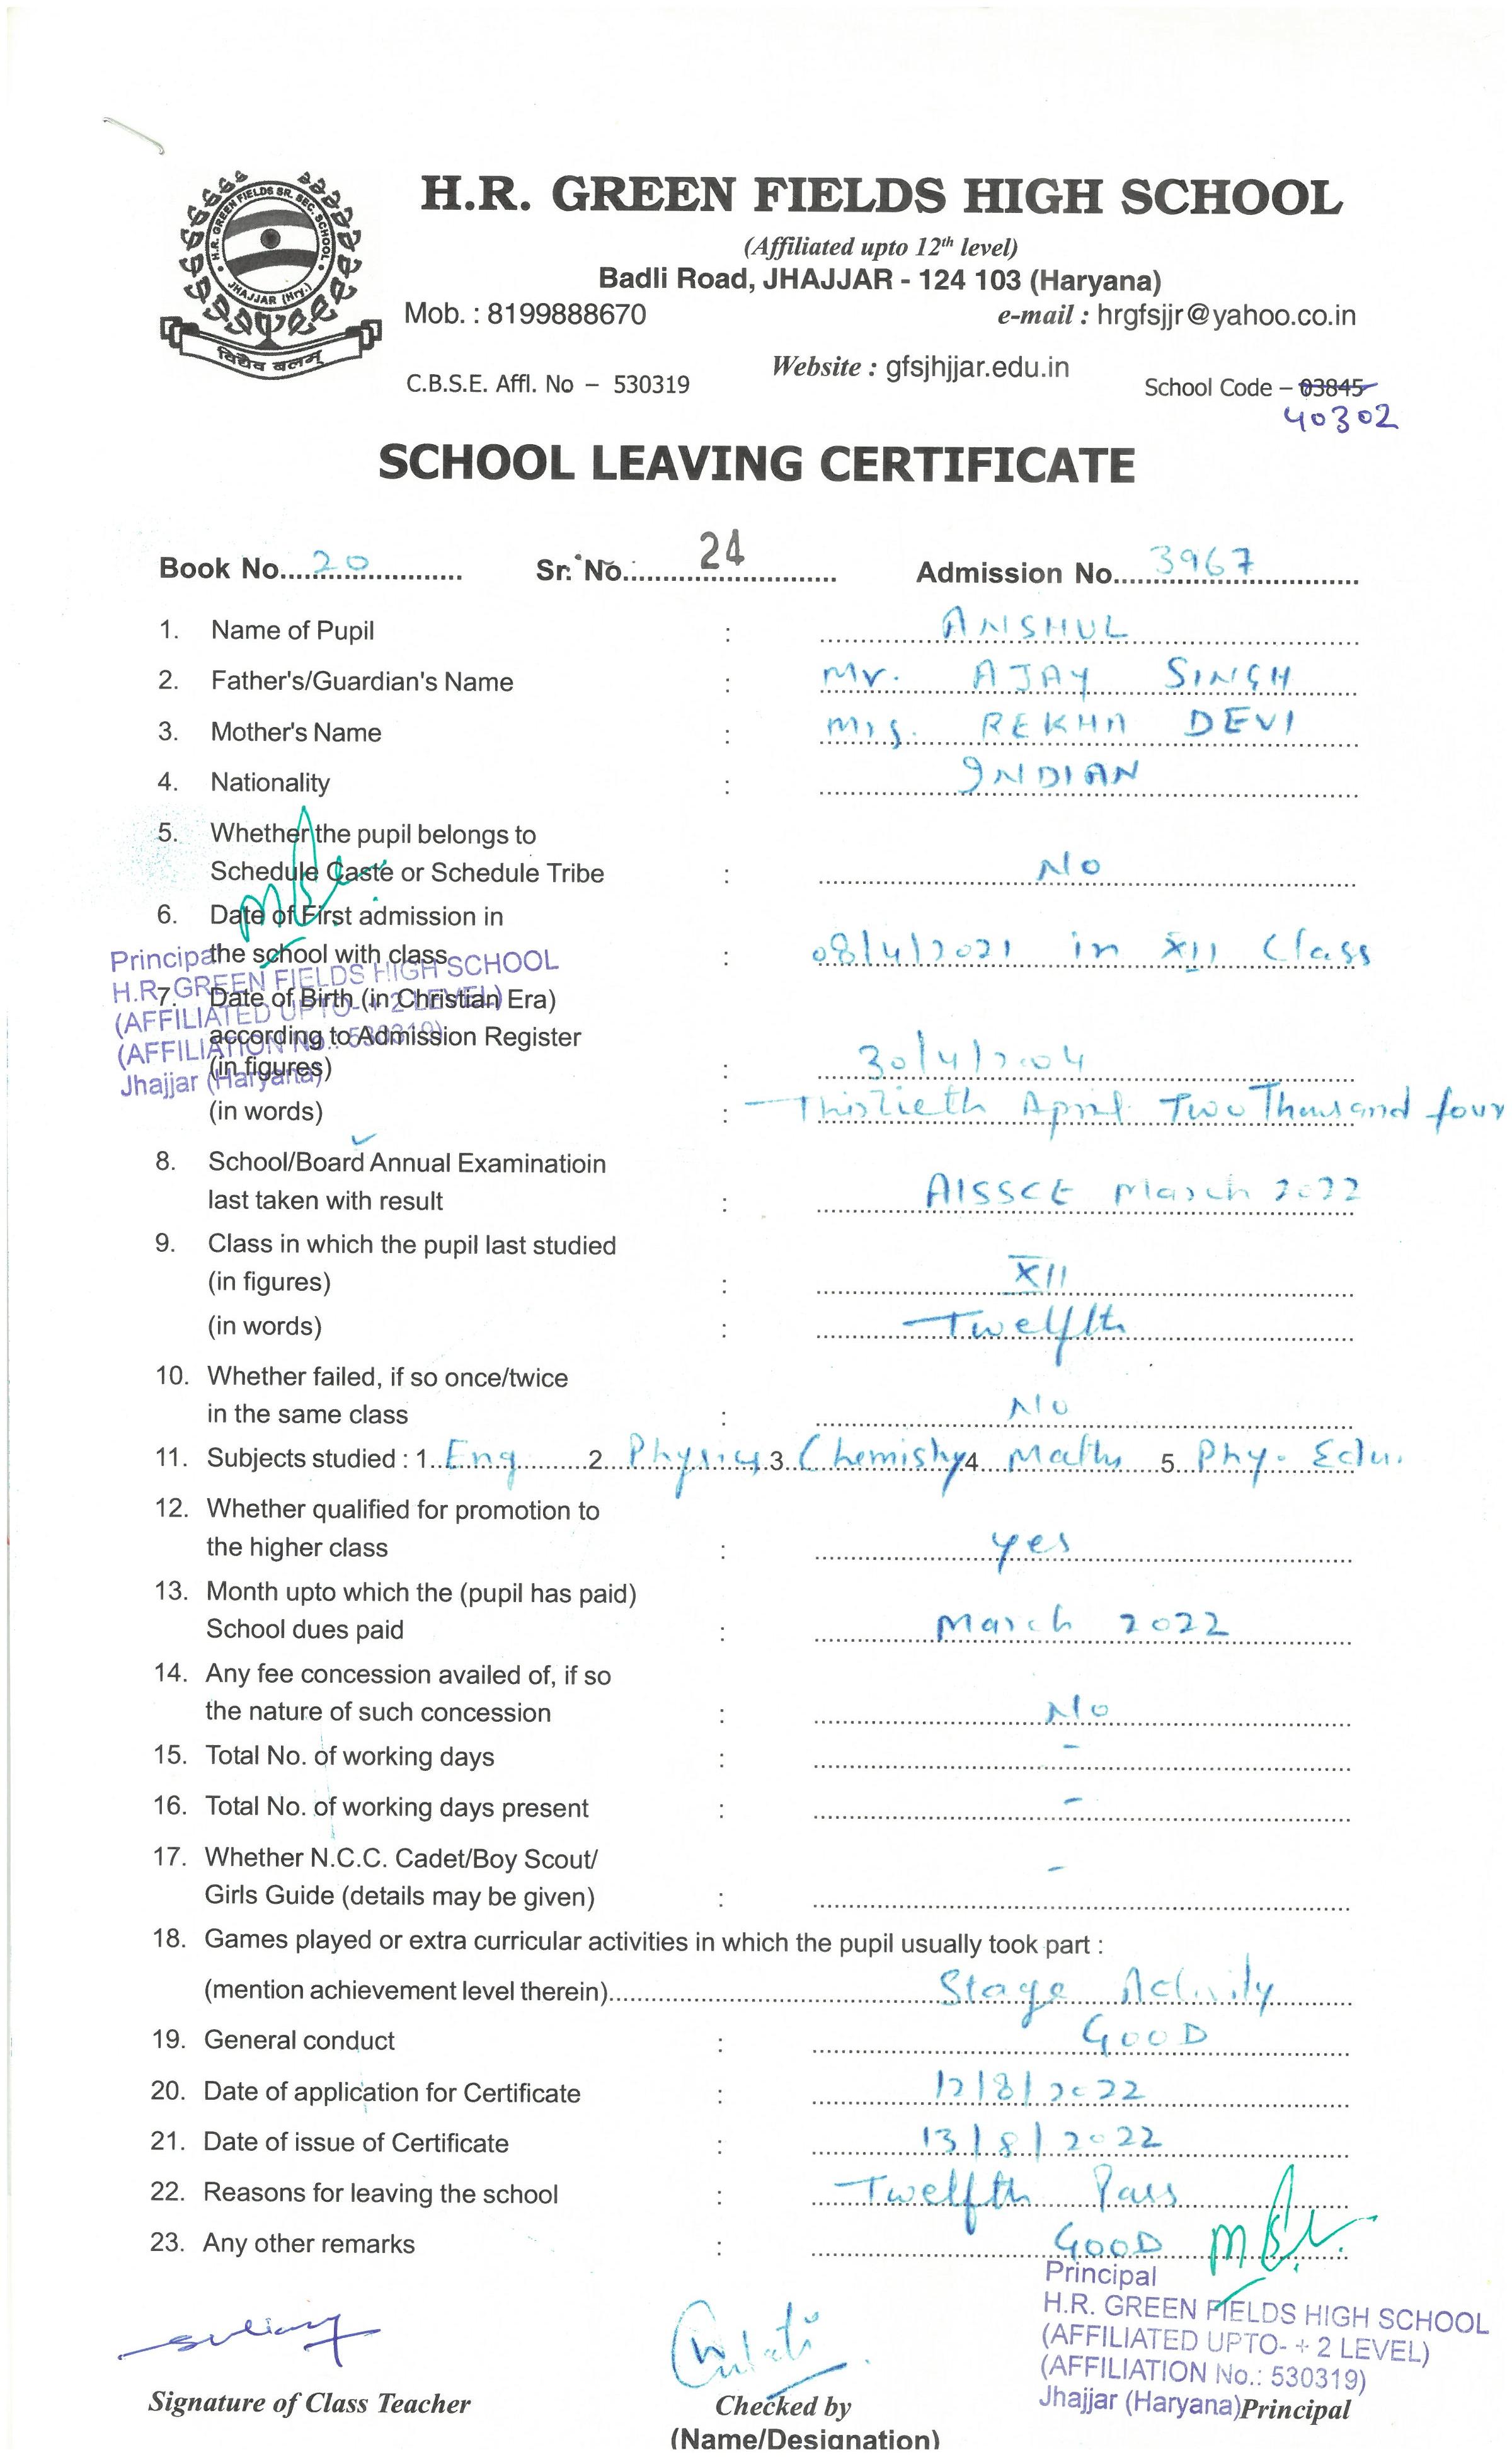 H.R. GREEN FIELDS SR. SEC. SCHOOL
JHAJJAR (Hry.)
विद्यैव बलम्
H.R. GREEN FIELDS HIGH SCHOOL
(Affiliated upto 12th level)
Badli Road, JHAJJAR - 124 103 (Haryana)
Mob. : 8199888670 e-mail : hrgfsjjr@yahoo.co.in
Website : gfsjhjjar.edu.in
C.B.S.E. Affl. No – 530319 School Code – 03845
40302
SCHOOL LEAVING CERTIFICATE
Book No. 20 Sr. No. 24 Admission No. 3967
1. Name of Pupil : ANSHUL
2. Father's/Guardian's Name : Mr. AJAY SINGH
3. Mother's Name : Mrs. REKHA DEVI
4. Nationality : INDIAN
5. Whether the pupil belongs to
Schedule Caste or Schedule Tribe : No
6. Date of First admission in
the school with class : 08/4/2021 in XII Class
Principal
H.R. GREEN FIELDS HIGH SCHOOL
(AFFILIATED UPTO- + 2 LEVEL)
(AFFILIATION No.: 530319)
Jhajjar (Haryana)
7. Date of Birth (in Christian Era)
according to Admission Register
(in figures) : 30/4/2004
(in words) : Thirtieth April Two Thousand four
8. School/Board Annual Examinatioin
last taken with result : AISSCE March 2022
9. Class in which the pupil last studied
(in figures) : XII
(in words) : Twelfth
10. Whether failed, if so once/twice
in the same class : No
11. Subjects studied : 1. Eng 2. Physics 3. Chemistry 4. Maths 5. Phy. Edu.
12. Whether qualified for promotion to
the higher class : yes
13. Month upto which the (pupil has paid)
School dues paid : March 2022
14. Any fee concession availed of, if so
the nature of such concession : No
15. Total No. of working days : -
16. Total No. of working days present : -
17. Whether N.C.C. Cadet/Boy Scout/
Girls Guide (details may be given) : -
18. Games played or extra curricular activities in which the pupil usually took part :
(mention achievement level therein) Stage Activity
19. General conduct : GOOD
20. Date of application for Certificate : 12/8/2022
21. Date of issue of Certificate : 13/8/2022
22. Reasons for leaving the school : Twelfth Pass
23. Any other remarks : GOOD
Principal
H.R. GREEN FIELDS HIGH SCHOOL
(AFFILIATED UPTO- + 2 LEVEL)
(AFFILIATION No.: 530319)
Jhajjar (Haryana)
Signature of Class Teacher Checked by Principal
(Name/Designation)